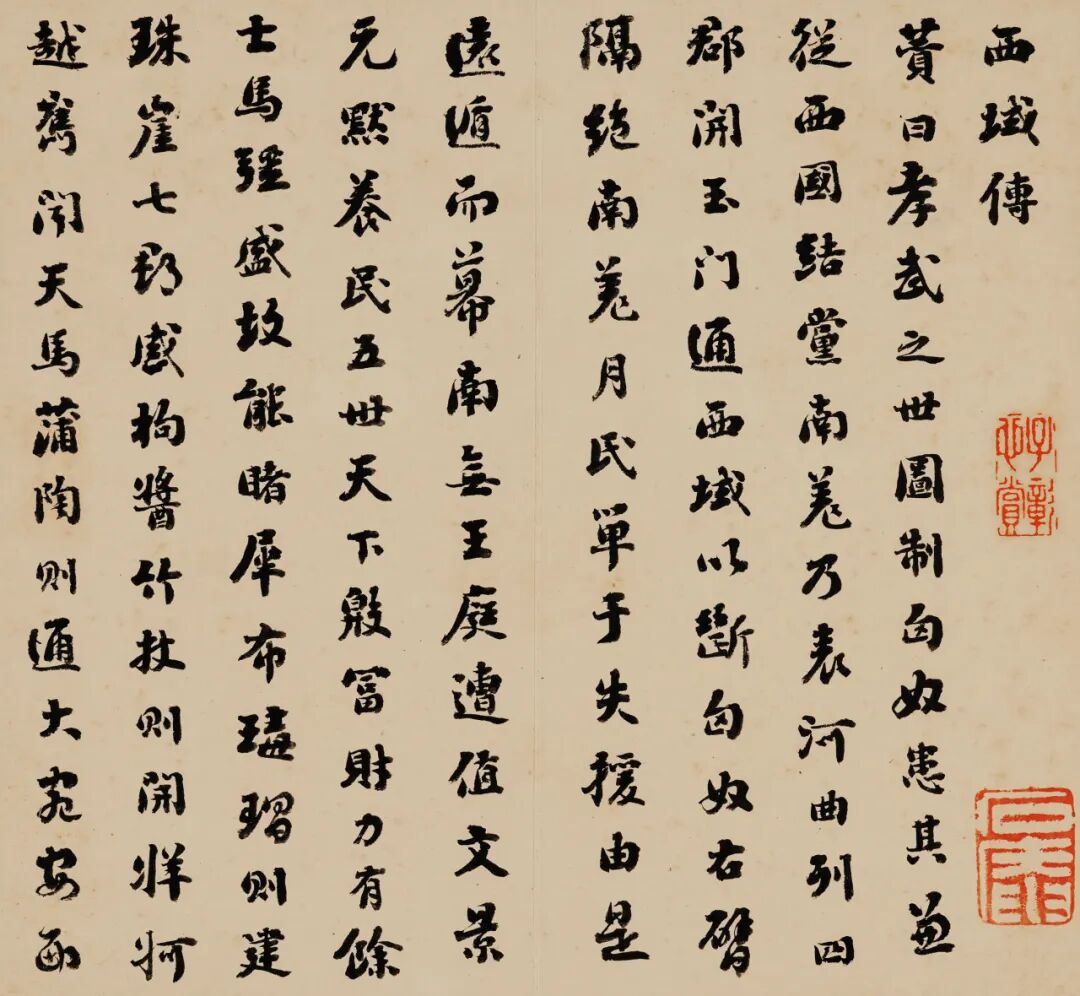 西域傳
贊曰孝武之世圖制匈奴患其兼
從西國結黨南羌乃表河曲列四
郡開玉門通西域以斷匈奴右臂
隔絕南羌月氏單于失援由是
遠遁而幕南無王庭遭值文景
元默養民五世天下殷富財力有餘
士馬彊盛故能睹犀布瑇瑁則建
珠崖七郡感枸醬竹杖則開牂牁
越嶲聞天馬蒲陶則通大宛安西